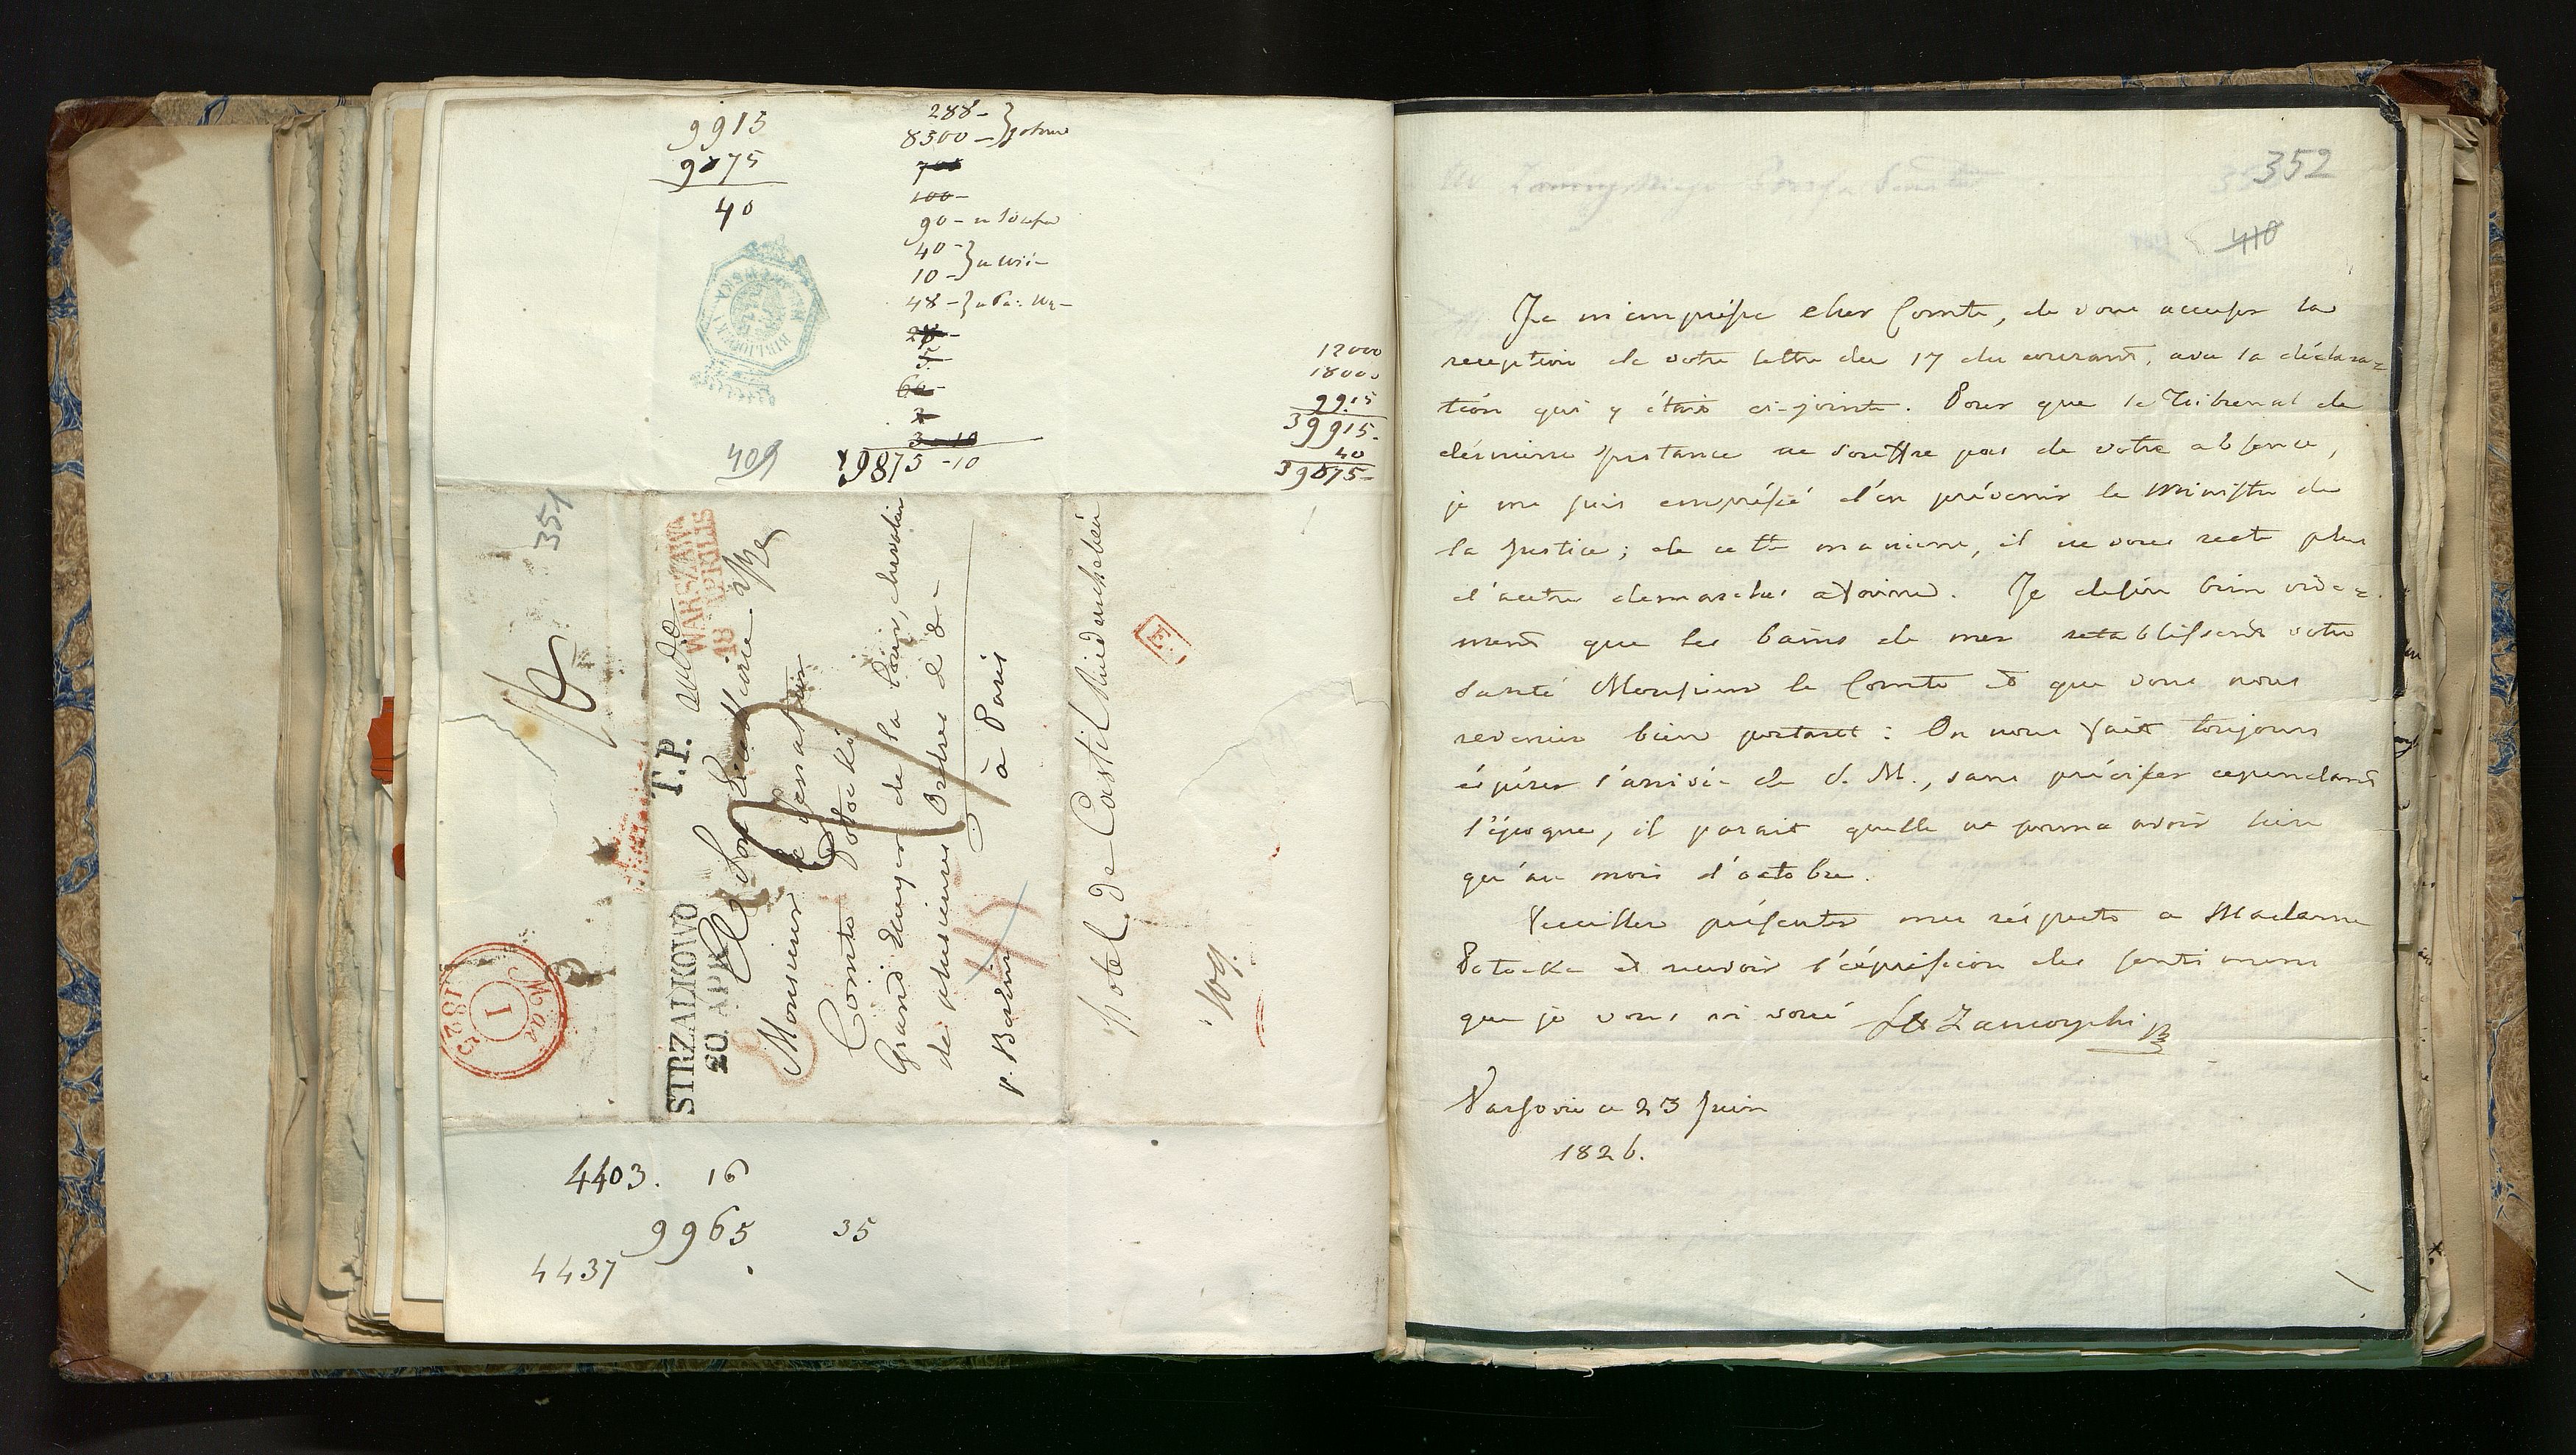 9915
9875
40
288 -
8500 -
700
100 -
90 -
40 -
10 -
48 -
5
60 -
3 - 10
9875 - 10
409
12000
18000
9915
39915 -
40
39875 -
351
WARSZAWA
18 APRILIS
T.P.
STRZALKOWO
20. APR.
A Son Excellence
Monsieur le Senateur
Comte Potocki
Grand Ecuyer de la Cour, chevalier
de plusieurs Ordres &&-
à Paris
p. Berlin
Hotel de Castil Rue de richelieu
109.
E.
Mai
1
1825
4403. 16
9965 35
4437
352
410
Je m'empresse cher Comte, de vous accuser la
reception de votre lettre du 17 du courant, avec la déclara=
tion qui y étais ci-jointe. Pour que le Tribunal de
dérniere Instance ne souffre pas de votre absence,
je me suis empréssé d'en prévenir le Ministre de
la Justice; de cette maniere, il ne vous reste plus
d'autre demarches a fairre. Je desire bien vive=
ment que les bains de mer retablissent votre
santé Monsieur le Comte et que vous nous
revenier bien portant: On nous fait toujours
éspérer l'arrivée de S. M., sans préciser cependant
l'époque, il parait quelle ne pourra avoir lieu
qu'au mois d'octobre.
Veuillez présenter mes réspects a Madame
Potocka et recevoir l'éxpréssion des sentimens
que je vous ai voué St Zamoyski
Varsovie ce 23 Juin
1826.